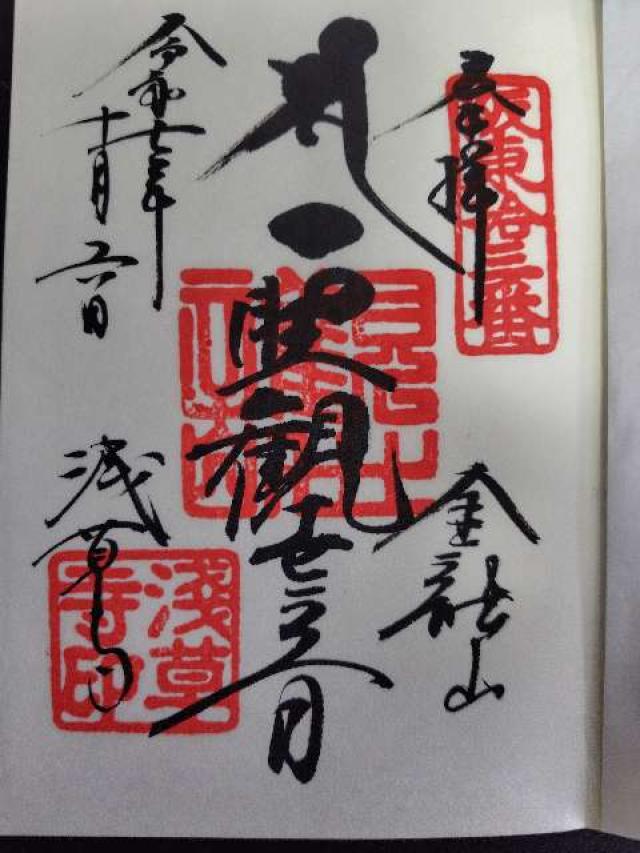 奉拝
坂東拾三番
金龍山
聖觀世音
令和七年
十月六日
浅草寺
淺草
寺印